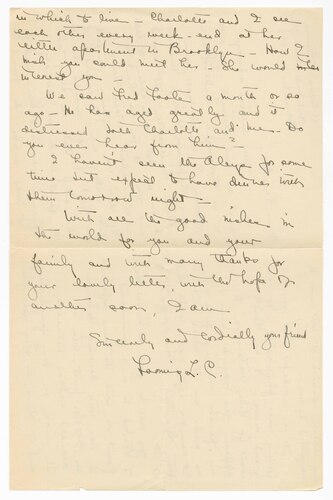 in which to live - Charlotte and I see
each other every week - and at her
little apartment in Brooklyn - How I
wish you could meet her - She would
interest you -
We saw Fred a month or so
ago - He has aged greatly and it
distressed both Charlotte and me - Do
you ever hear from him? -
I haven't seen the for some
time but expect to have dinner with
them tomorrow night -
With all the good wishes in
the world for you and your
family and with many thanks for
your lovely letter, with the hope of
another soon, I am
Sincerely and cordially your friend
L. C.